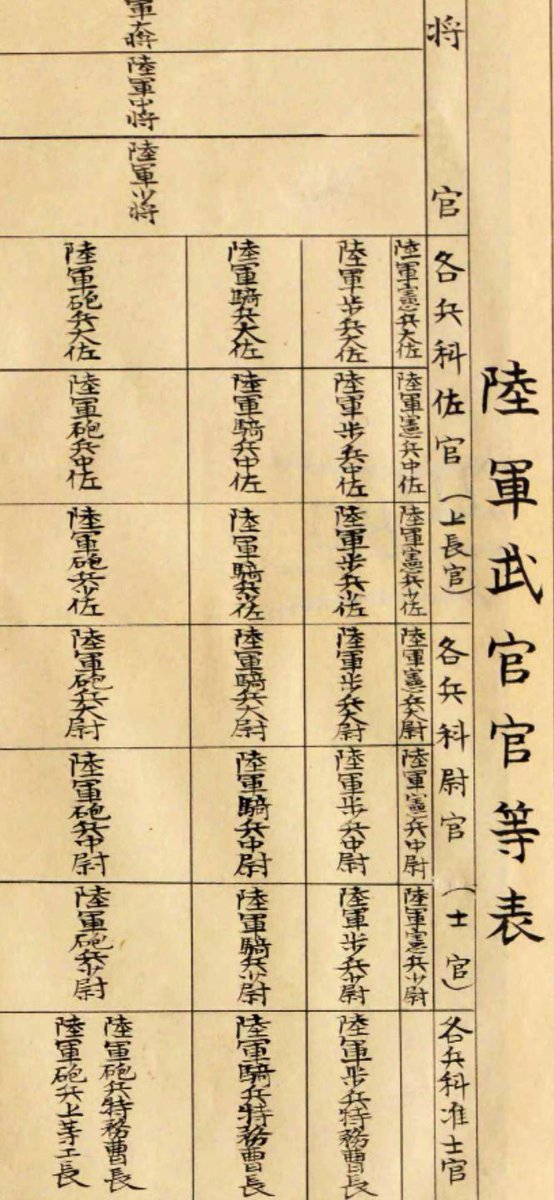 陸軍武官官等表
将官
各兵科佐官（上長官）
各兵科尉官（士官）
各兵科准士官
軍大将
陸軍中将
陸軍少将
陸軍憲兵大佐
陸軍憲兵中佐
陸軍憲兵少佐
陸軍憲兵大尉
陸軍憲兵中尉
陸軍憲兵少尉
陸軍歩兵大佐
陸軍歩兵中佐
陸軍歩兵少佐
陸軍歩兵大尉
陸軍歩兵中尉
陸軍歩兵少尉
陸軍歩兵特務曹長
陸軍騎兵大佐
陸軍騎兵中佐
陸軍騎兵少佐
陸軍騎兵大尉
陸軍騎兵中尉
陸軍騎兵少尉
陸軍騎兵特務曹長
陸軍砲兵大佐
陸軍砲兵中佐
陸軍砲兵少佐
陸軍砲兵大尉
陸軍砲兵中尉
陸軍砲兵少尉
陸軍砲兵特務曹長
陸軍砲兵上等工長